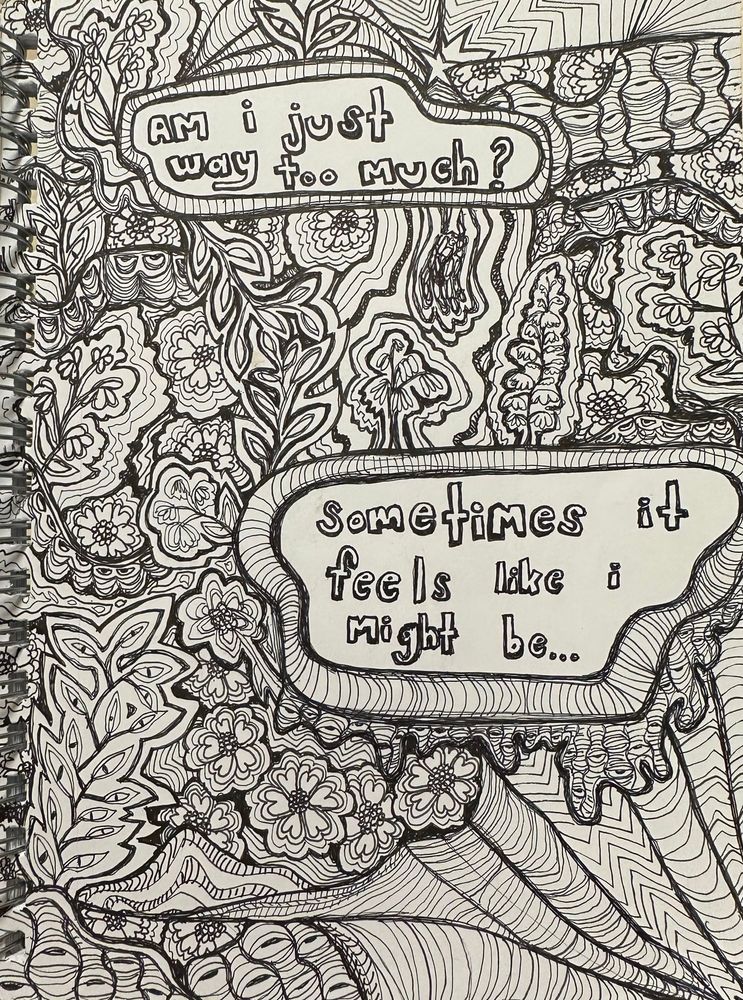 AM i just
way too much?
sometimes it
feels like i
might be...